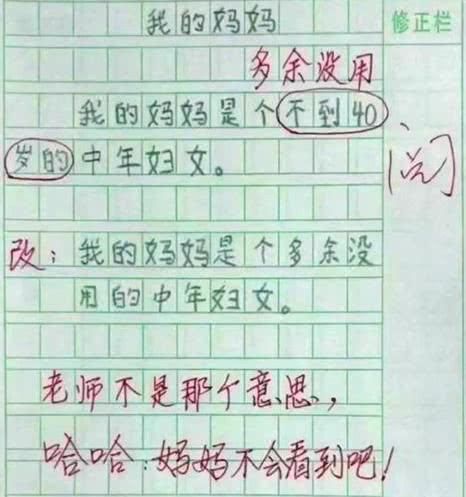 我的妈妈
修正栏
多余没用
我的妈妈是个不到40、
岁的中年妇女。
阅
改：我的妈妈是个多余没
用的中年妇女。
老师不是那个意思，
哈哈：妈妈不会看到吧！